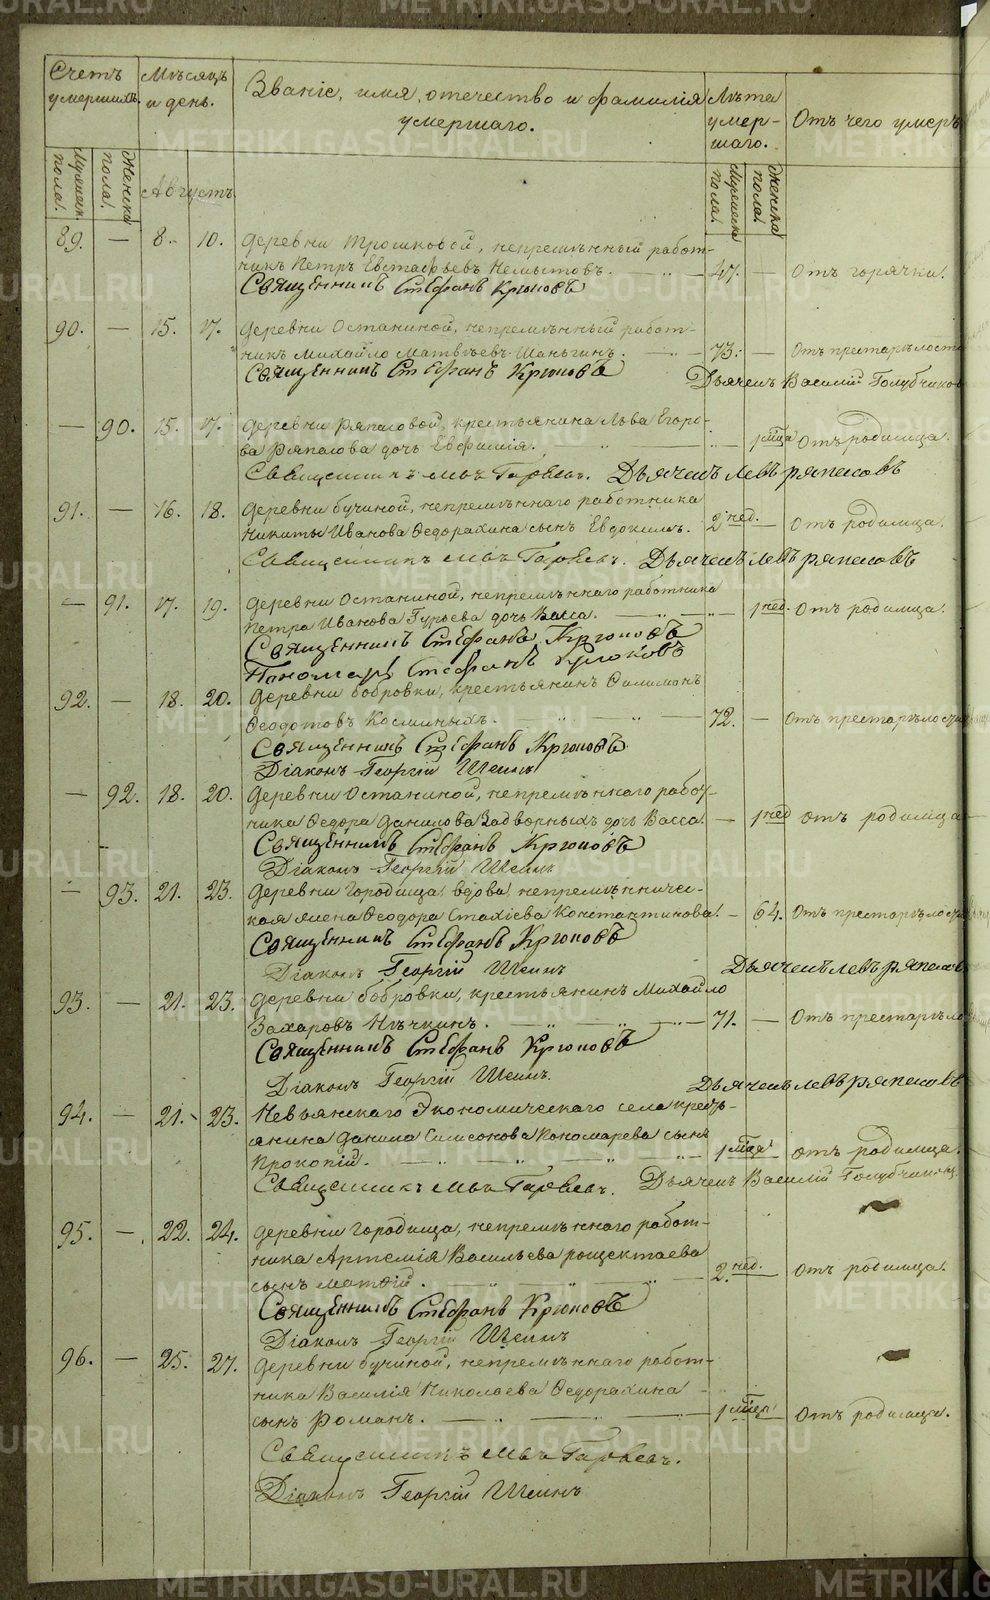 Счетъ умершихъ.
Мѣсяцъ и день.
Званіе, имя, отечество и фамилія умершаго.
Лѣта умершаго.
Отъ чего умеръ
Мужеска пола.
Женска пола.
Августъ.
Мужеска пола.
Женска пола.
89. — 8. 10. Деревни Трошковой, непремѣнный работ-
никъ Петръ Евстафьевъ 47. — Отъ горячки.
Священникъ Стефанъ Крюковъ
90. — 15. 17. Деревни Останиной, непремѣнный работ-
никъ Михайло Матвѣевъ Шаньгинъ. 73. — Отъ престарѣлости
Священникъ Стефанъ Крюковъ
Дьячекъ Василій Голубчиковъ
— 90. 15. 17. Деревни Ряпасовой, крестьянина Льва Егоро-
ва Ряпасова дочь Евфимія. 1 мца Отъ родимца.
Священникъ Дьячекъ Левъ Ряпасовъ
91. — 16. 18. Деревни Бучиной, непремѣннаго работника
Никиты Иванова Федорахина сынъ Евдокимъ. 2 нед. — Отъ родимца.
Священникъ Дьячекъ Левъ Ряпасовъ
— 91. 17. 19. Деревни Останиной, непремѣннаго работника
Петра Иванова Гурьева дочь Васса. 1 нед. Отъ родимца.
Священникъ Стефанъ Крюковъ
Пономарь Стефанъ Крюковъ
92. — 18. 20. Деревни Бобровки, крестьянинъ
Ѳеодотовъ Косминыхъ. 72. — Отъ престарѣлости
Священникъ Стефанъ Крюковъ
Діаконъ Георгій Шеинъ
— 92. 18. 20. Деревни Останиной, непремѣннаго работ-
ника Федора Данилова Задворныхъ дочь Васса. — 1 нед отъ родимца
Священникъ Стефанъ Крюковъ
Діаконъ Георгій Шеинъ
— 93. 21. 23. Деревни Городища, вдова, непремѣнничес-
кая жена Ѳеодора Стахіева Константинова. — 64. Отъ престарѣлости
Священникъ Стефанъ Крюковъ
Діаконъ Георгій Шеинъ
Дьячекъ Левъ Ряпасовъ
93. — 21. 23. Деревни Бобровки, крестьянинъ Михайло
Захаровъ 71. — Отъ престарѣло
Священникъ Стефанъ Крюковъ
Діаконъ Георгій Шеинъ.
Дьячекъ Левъ Ряпасовъ
94. — 21. 23. Невьянскаго Экономическаго села кресть-
янина Данила Самсонова Кономарева сынъ
Прокопій. 1 мца отъ родимца.
Священникъ Дьячекъ Василій Голубчиковъ.
95. — 22. 24. Деревни Городища, непремѣннаго работ-
ника Артемія Васильева Рощектаева
сынъ Матѳій. 2. нед. Отъ родимца.
Священникъ Стефанъ Крюковъ
Діаконъ Георгій Шеинъ
96. — 25. 27. Деревни Бучиной, непремѣннаго работ-
ника Василія Николаева Федорахина
сынъ Романъ. 1 мца Отъ родимца.
Священникъ
Діаконъ Георгій Шеинъ
METRIKI.GASO-URAL.RU